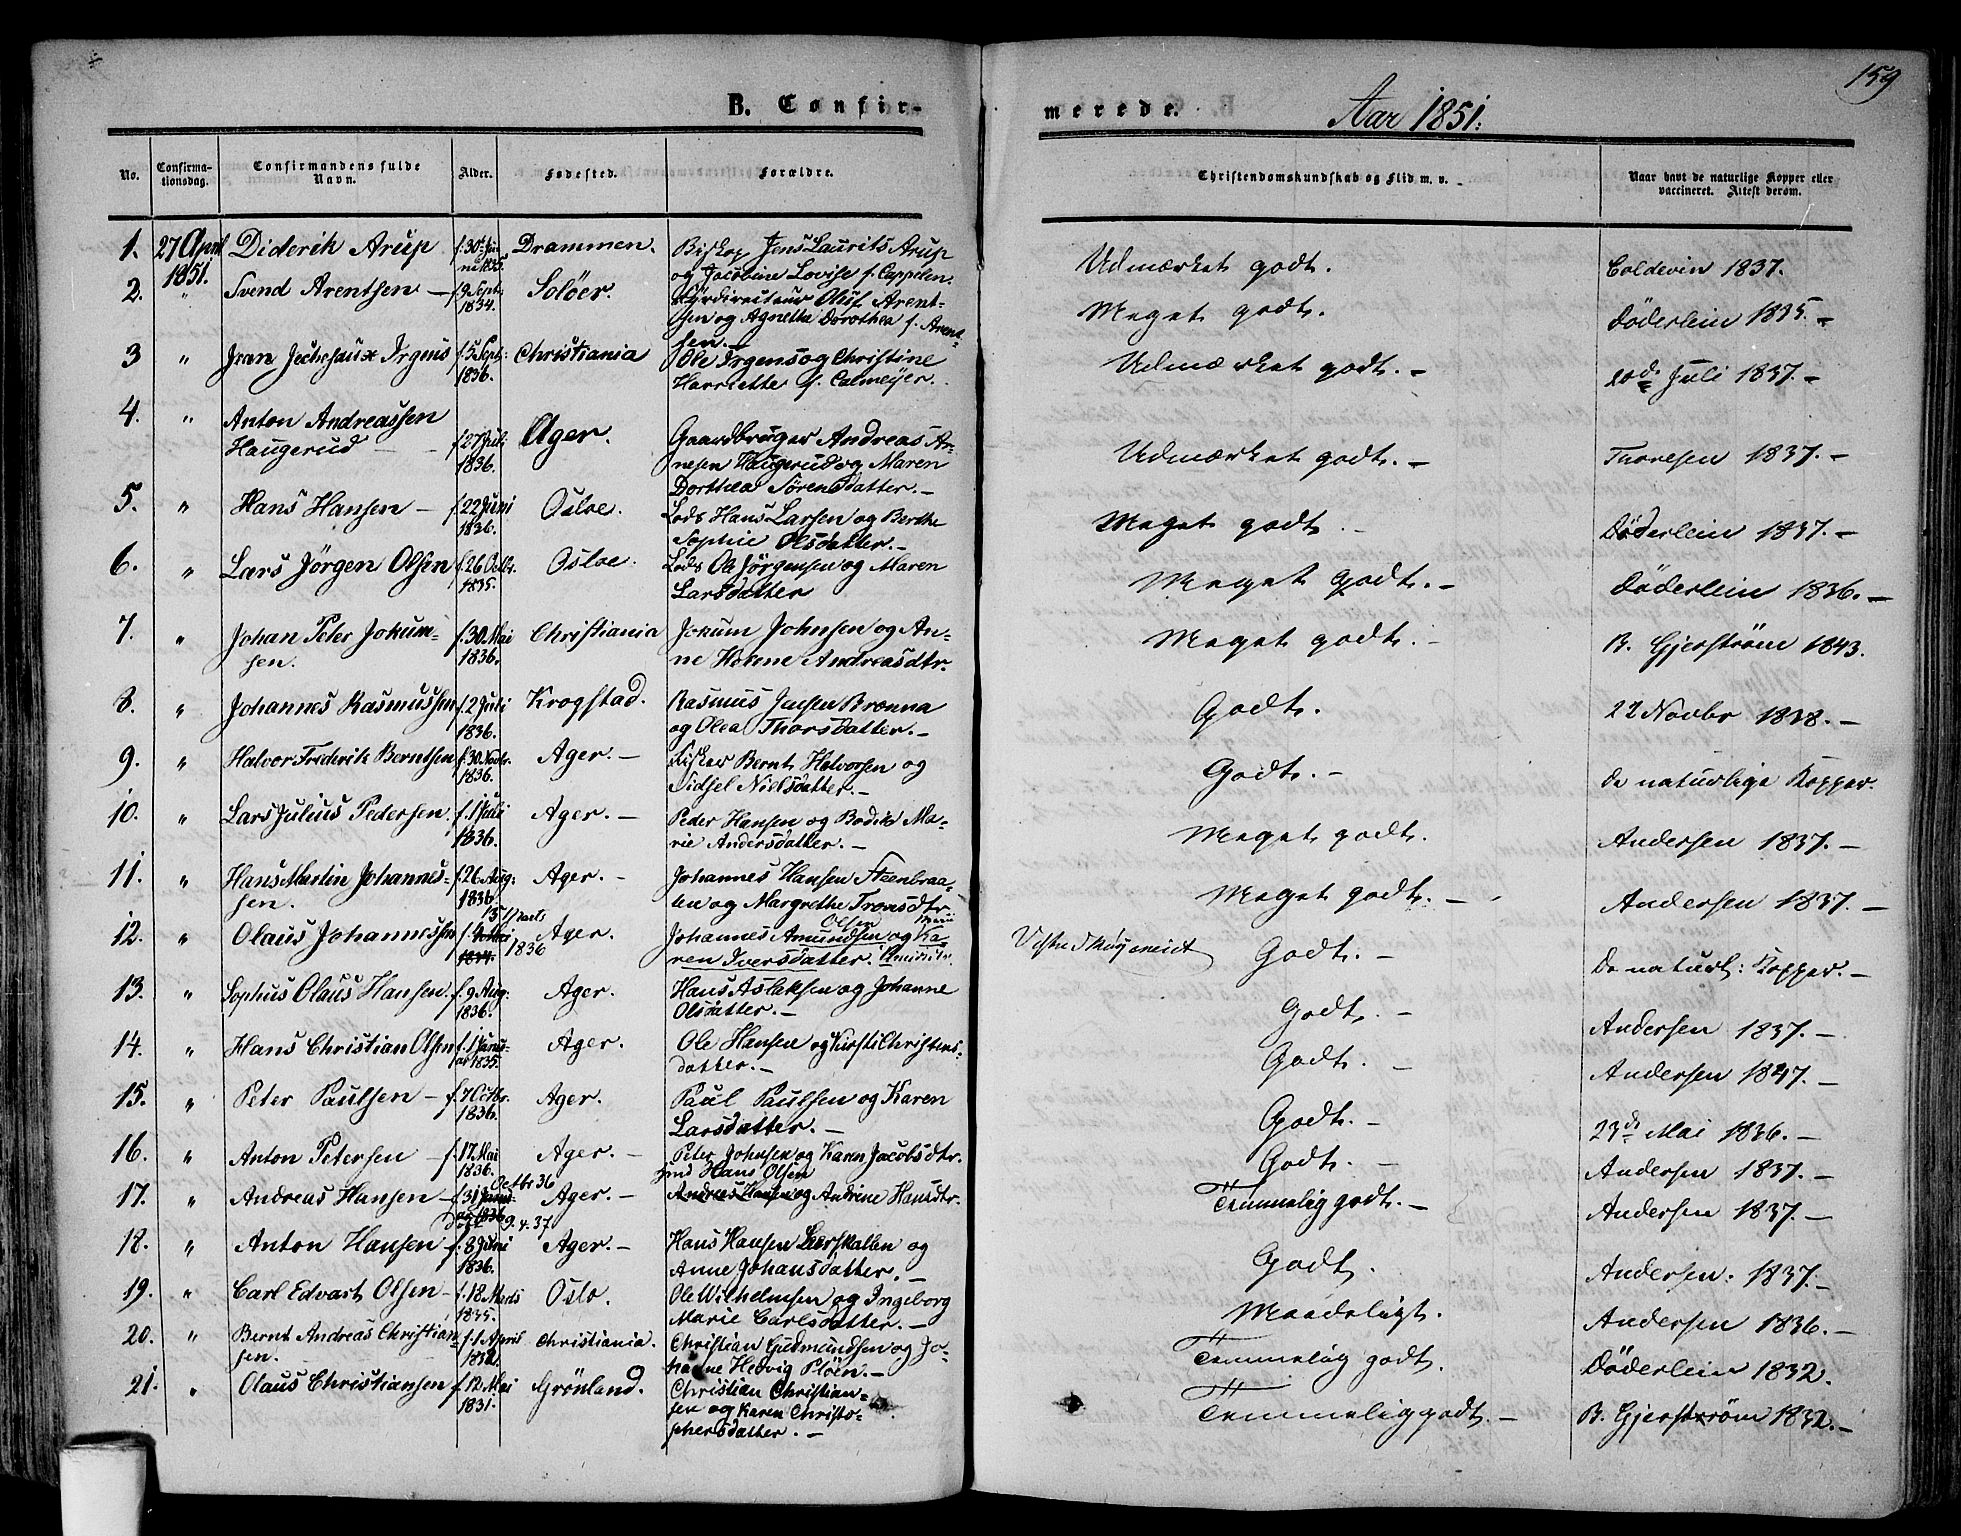 159
B. Confir-
merede. Aar 1851.
No. Confirma-tionsdag. Confirmandens fulde Navn. Alder. Fødested. Forældre. Christendomskundskab og Flid m. v. Naar havt de naturlige Kopper eller vaccineret. Attest derom.
1. 27 April 1851. Diderik Arup f. 30te Juni 1835. Drammen. Biskop Jens Laurits Arup og Jacobine Lovise f. Cappelen. Udmærket godt. Coldevin 1837.
2. " Svend Arentsen — f. 9 Septr. 1834. Soløer. Olus Arentsen og Agnethe Dorothea f. Arentsen. — Meget godt. Döderlein 1835. —
3 " Irgens f. 5 Septr. 1836. Christiania Ole Irgens og Christine Harriette f. Calmeyer. Udmærket godt. — 20de Juli 1837. —
4. " Anton Andreassen Haugerud — f. 27 Juli 1836. Ager. Gaardbruger Andreas Arnesen Haugerud og Maren Dorthea Sørensdatter. — Udmærket godt. — Thoresen 1837. —
5. " Hans Hansen — f. 22 Juni 1836. Osloe. Lods Hans Larsen og Berthe Sophie Olsdatter. — Meget godt. — Döderlein 1837. —
6. " Lars Jörgen Olsen f. 26 Octbr. 1835. Osloe. Lods Ole Jörgensen og Maren Larsdatter Meget Godt. — Döderlein 1836. —
7. " Johan Peter Jokumsen. f. 30 Mai 1836. Christiania Jokum Johnsen og Anne Helene Andreasdtr. Meget godt. B. Gjerström 1843.
8. " Johannes Rasmussen f. 2 Juli 1836. Krogstad. Rasmus Juelsen Brønna og Olea Thorsdatter. — Godt. 22 Novbr 1838. —
9. " Halvor Frederik Berntsen f. 30 Novbr. 1836. Ager. — Fisker Bernt Halvorsen og Sidsel Nielsdatter. — Godt. — De naturlige Kopper.
10. " Lars Julius Pedersen. f. 1 Juli 1836. Ager. — Peder Hansen og Bodil Marie Andersdatter. — Meget godt. Andersen 1837. —
11. " Hans Martin Johannessen. f. 26 Aug: 1836. Ager. — Johannes Hansen Steenbraaten og Margrethe Tronsdtr Meget godt. — Andersen 1837. —
12. " Olaus Johannessen f. 4 Mai 1834. 15 Marts 1836 Ager. Johannes Amundsen Olsen og Karen Iversdatter. Godt. — De naturl: Kopper. —
13. " Sophus Olaus Hansen. f. 9 Aug: 1836. Ager. Hans Aslaksen og Johanne Olsdatter. — Godt. — Andersen 1837. —
14. " Hans Christian Olsen f. 1 Januar 1835. Ager. Ole Hansen og Kirsti Christensdatter. — Godt. — Andersen 1847. —
15. " Peter Paulsen — f. 7 Octbr. 1836. Ager. Paul Paulsen og Karen Larsdatter. — Godt. — 23de Mai 1836. —
16. " Anton Petersen — f. 17. Mai 1836. Ager. — Peter Johnsen og Karen Jacobsdtr. Godt. — Andersen 1837. —
17. " Andreas Hansen — f. 31 Januar 1836 Octbr 36 døbt 9.4.37 Ager. — Smed Hans Olsen Andreas Hansen og Andrine Hansdtr. Temmelig godt. — Andersen 1837. —
18. " Anton Hansen f. 8 Juni 1836. Ager. — Hans Hansen Leerskallen og Anne Johansdatter. — Godt. Andersen. 1837. —
19. " Carl Edvart Olsen — f. 18 Marts 1835. Oslo. Ole Wilhelmsen og Ingeborg Marie Carlsdatter. — Maadeligt. Andersen 1836. —
20. " Bernt Andreas Christiansen. f. 1 April 1832. Christiania. Christian Gudmundsen og Johanne Hedvig Pløen. — Temmelig godt. Döderlein 1832.
21. " Olaus Christiansen f. 12 Mai 1831. Grønland. Christian Christiansen og Karen Christophersdatter. — Temmelig godt. — B. Gjerström 1832. —